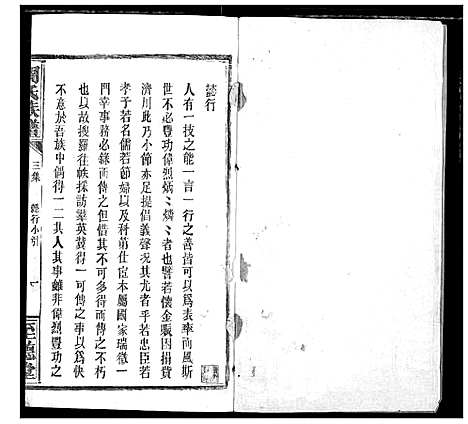 懿行
人有一技之能一言一行之善皆可以為表率而風斯
世不必豐功偉烈炳〻燐〻者也譬若懷金賑困捐費
濟川此乃小節亦足提倡義聲況其尤者乎若忠臣若
孝子若名儒若節婦以及科第仕宦本屬國家瑞徵一
門幸事務必錄而傳之但惜其不克多得而傳之不朽
也以故搜羅往帙採訪羣英冀得一可傳之事以為快
不意於吾族中偶得一二其人其事雖非偉烈豐功之
氏族譜
三集
懿行小引
一
至德堂